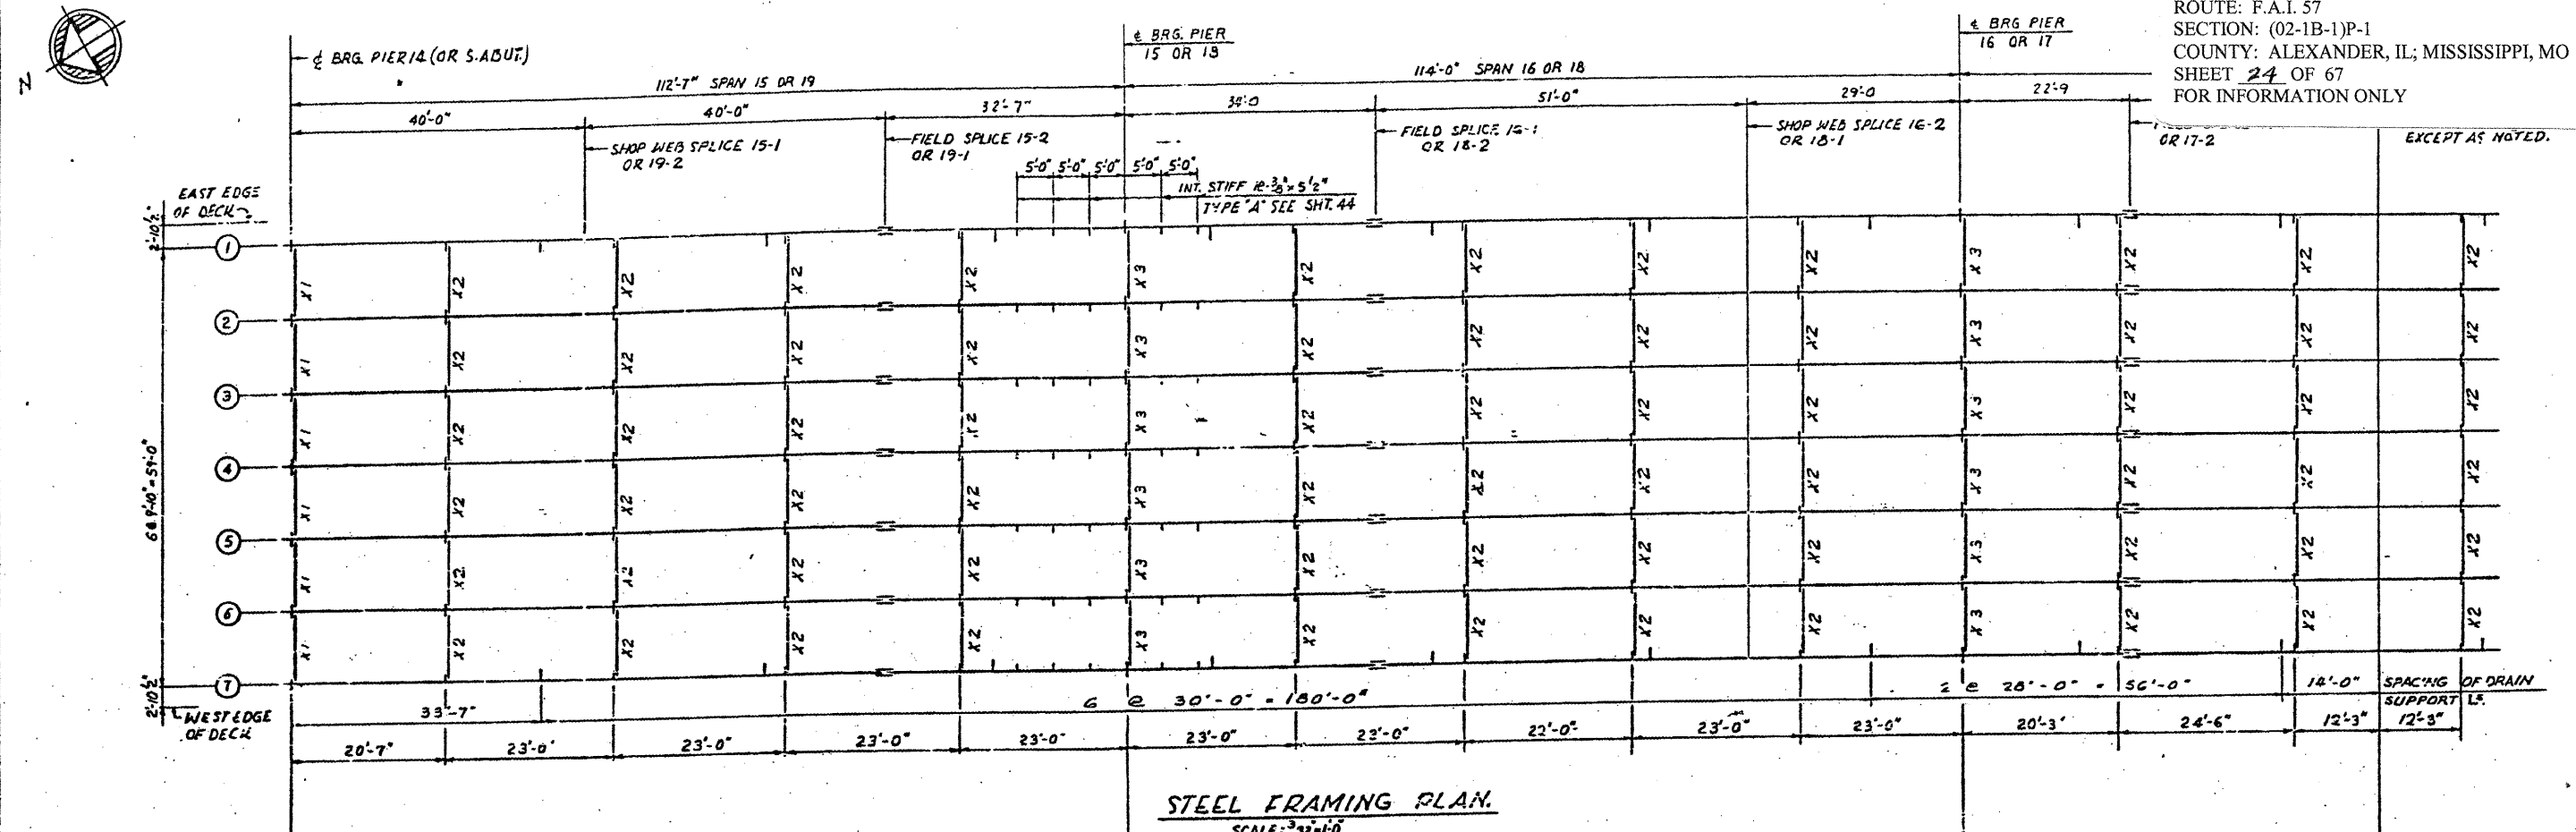 ROUTE: F.A.I. 57
SECTION: (02-1B-1)P-1
COUNTY: ALEXANDER, IL; MISSISSIPPI, MO
SHEET 24 OF 67
FOR INFORMATION ONLY
EXCEPT AS NOTED.
N
℄ BRG. PIER 14 (OR S. ABUT.)
℄ BRG. PIER
15 OR 18
℄ BRG PIER
16 OR 17
112'-7" SPAN 15 OR 19
114'-0" SPAN 16 OR 18
40'-0"
40'-0"
32'-7"
34'-0
51'-0"
29'-0
22'-9
SHOP WEB SPLICE 15-1
OR 19-2
FIELD SPLICE 15-2
OR 19-1
FIELD SPLICE 16-1
OR 18-2
SHOP WEB SPLICE 16-2
OR 18-1
OR 17-2
5'-0" 5'-0" 5'-0" 5'-0" 5'-0"
INT. STIFF ℞ 3/8" x 5 1/2"
TYPE "A" SEE SHT. 44
EAST EDGE
OF DECK
2'-10½"
6 @ 9'-10" = 59'-0"
2'-10½"
WEST EDGE
OF DECK
1
X1 X2 X2 X2 X2 X3 X2 X2 X2 X2 X3 X2 X2 X2
2
X1 X2 X2 X2 X2 X3 X2 X2 X2 X2 X3 X2 X2 X2
3
X1 X2 X2 X2 X2 X3 X2 X2 X2 X2 X3 X2 X2 X2
4
X1 X2 X2 X2 X2 X3 X2 X2 X2 X2 X3 X2 X2 X2
5
X1 X2 X2 X2 X2 X3 X2 X2 X2 X2 X3 X2 X2 X2
6
X1 X2 X2 X2 X2 X3 X2 X2 X2 X2 X3 X2 X2 X2
7
33'-7"
6 @ 30'-0" = 180'-0"
2 @ 28'-0" = 56'-0"
14'-0"
SPACING OF DRAIN
SUPPORT LS.
20'-7" 23'-0" 23'-0" 23'-0" 23'-0" 23'-0" 23'-0" 22'-0" 23'-0" 23'-0" 20'-3" 24'-6" 12'-3" 12'-3"
STEEL FRAMING PLAN.
SCALE: 3/32"=1'-0"